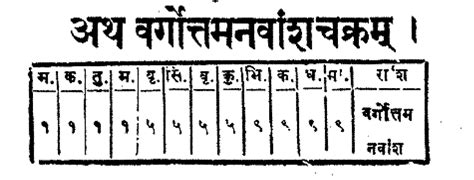 अथ वर्गोत्तमनवांशचक्रम् ।
म. क. तु. म. वृ. सिं. वृ. कु. मि. क. ध. मी. राश
१ १ १ १ ५ ५ ५ ५ ९ ९ ९ ९ वर्गोत्तम
नवांश